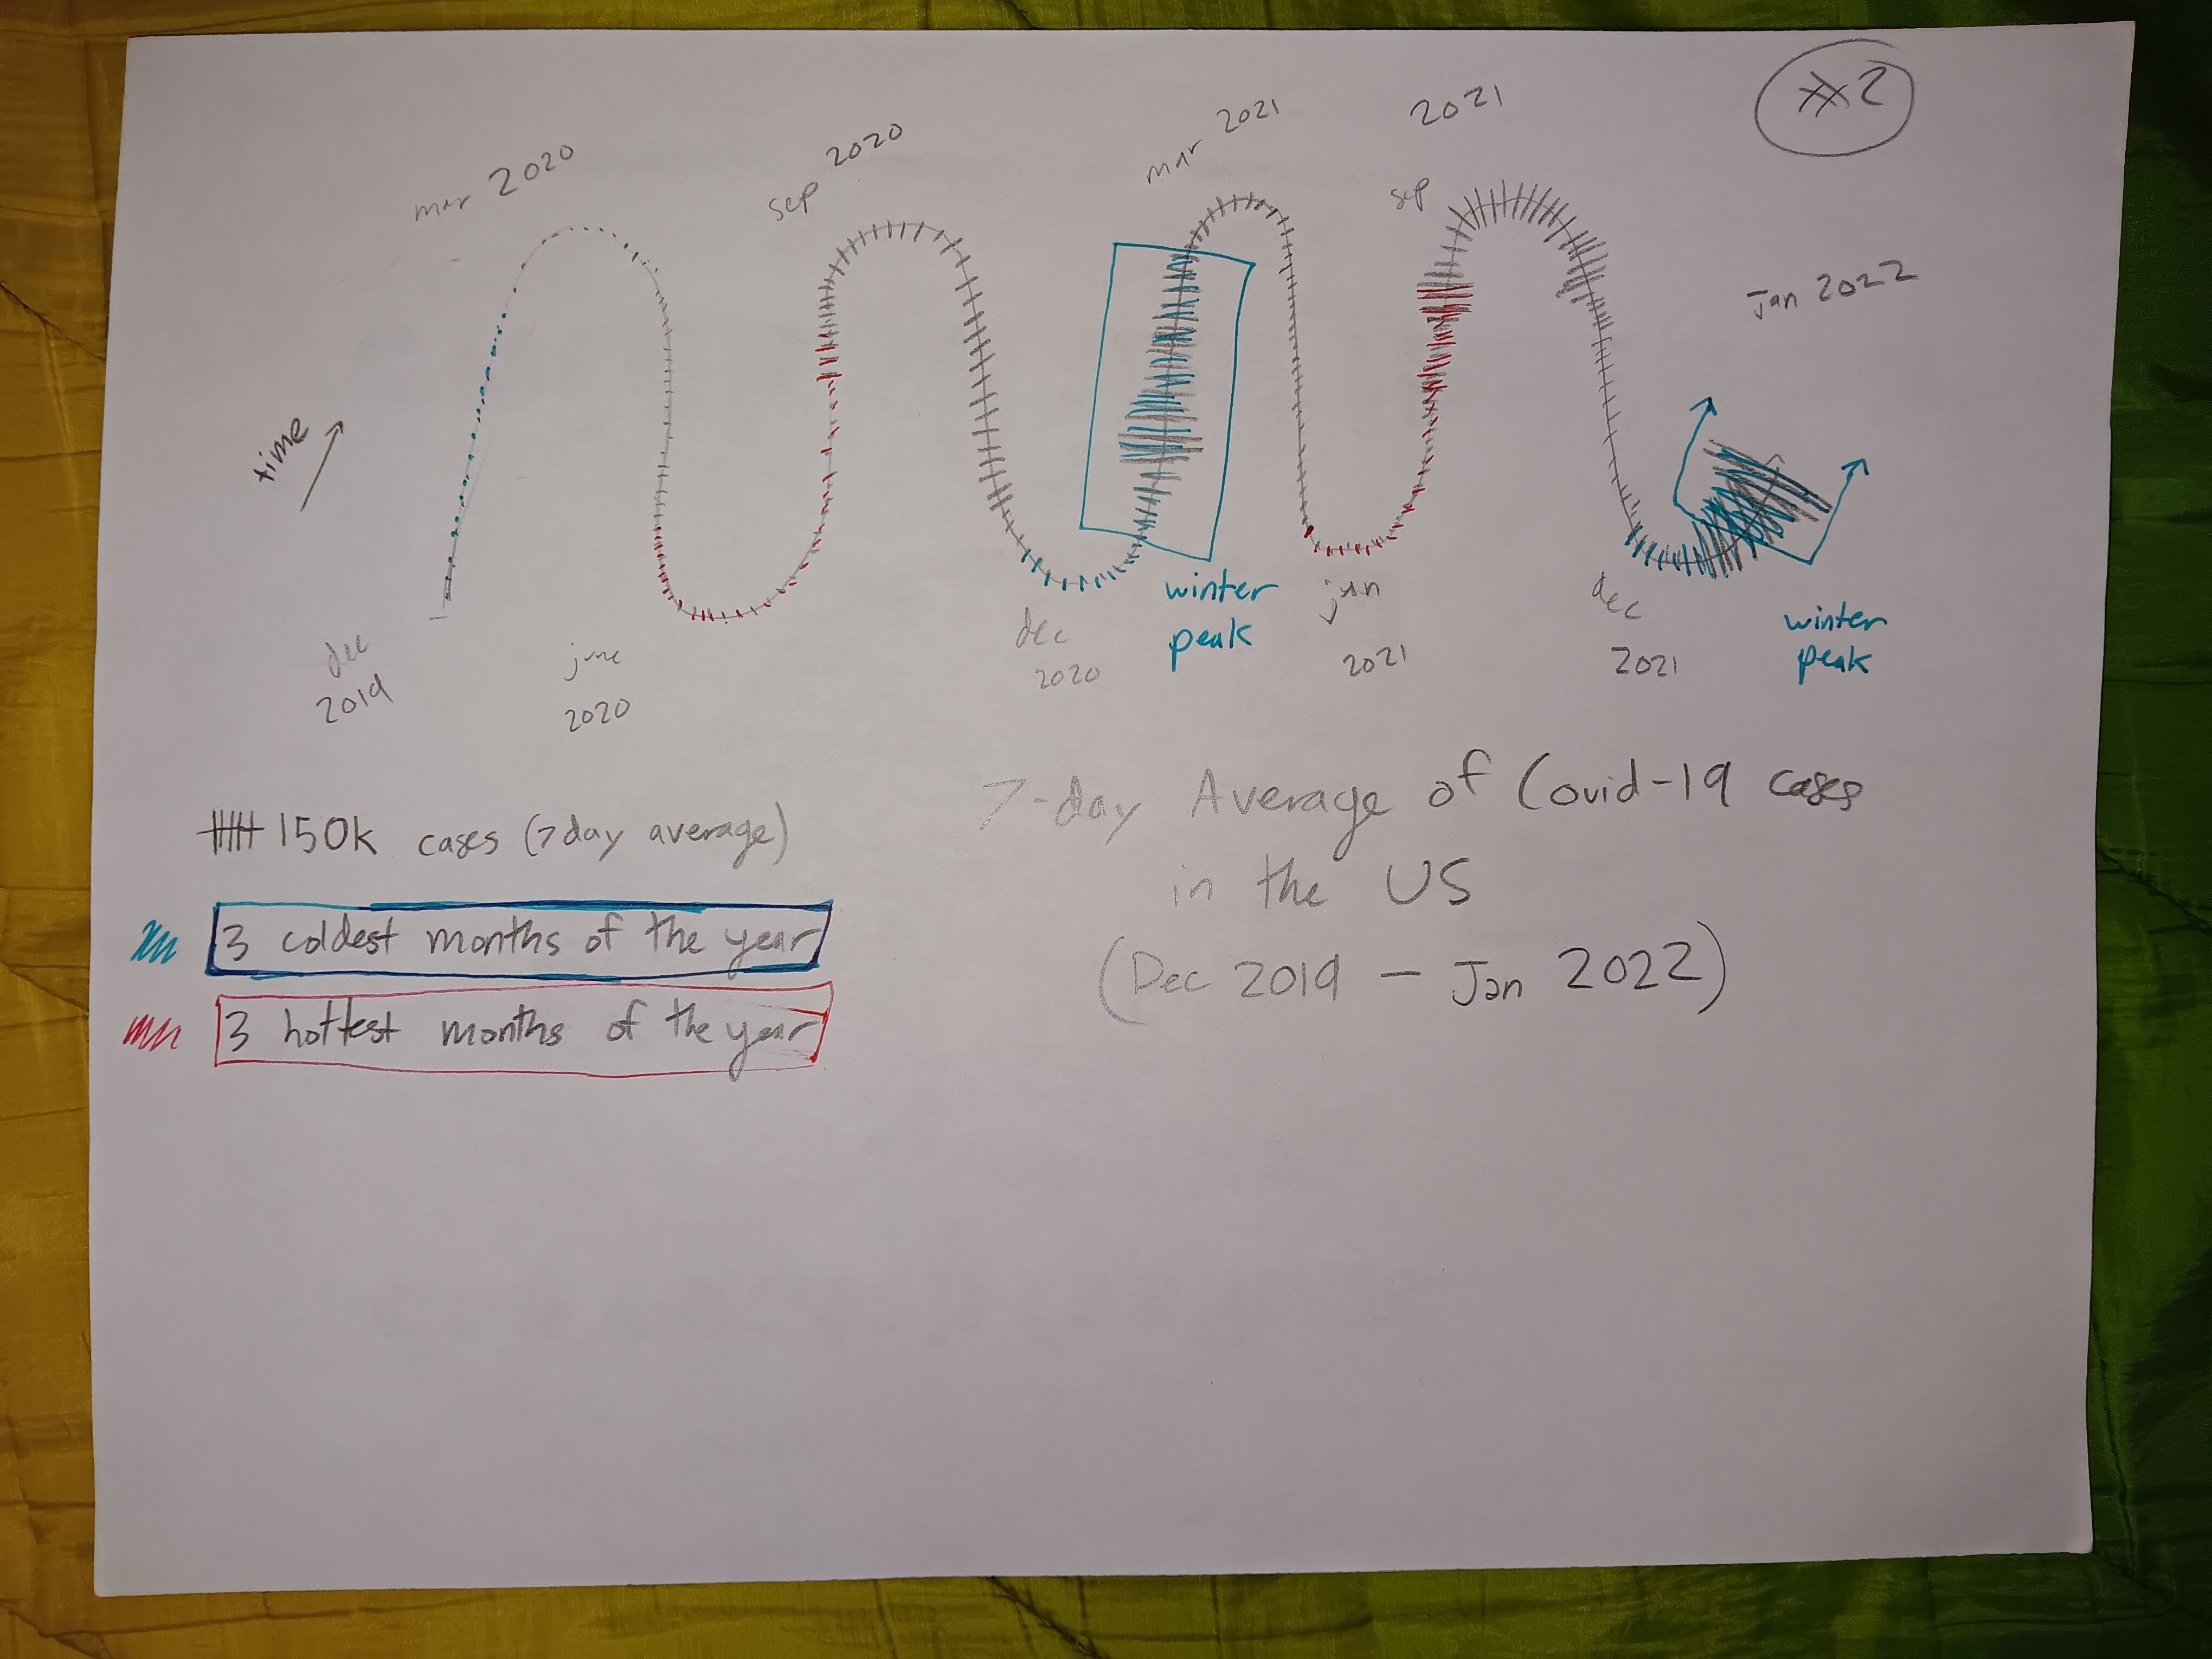 #2
mar 2020
sep 2020
mar 2021
sep 2021
Jan 2022
time
dec
2019
june
2020
dec
2020
winter
peak
jun
2021
dec
2021
winter
peak
150k cases (7 day average)
3 coldest months of the year
3 hottest months of the year
7-day Average of Covid-19 cases
in the US
(Dec 2019 — Jan 2022)